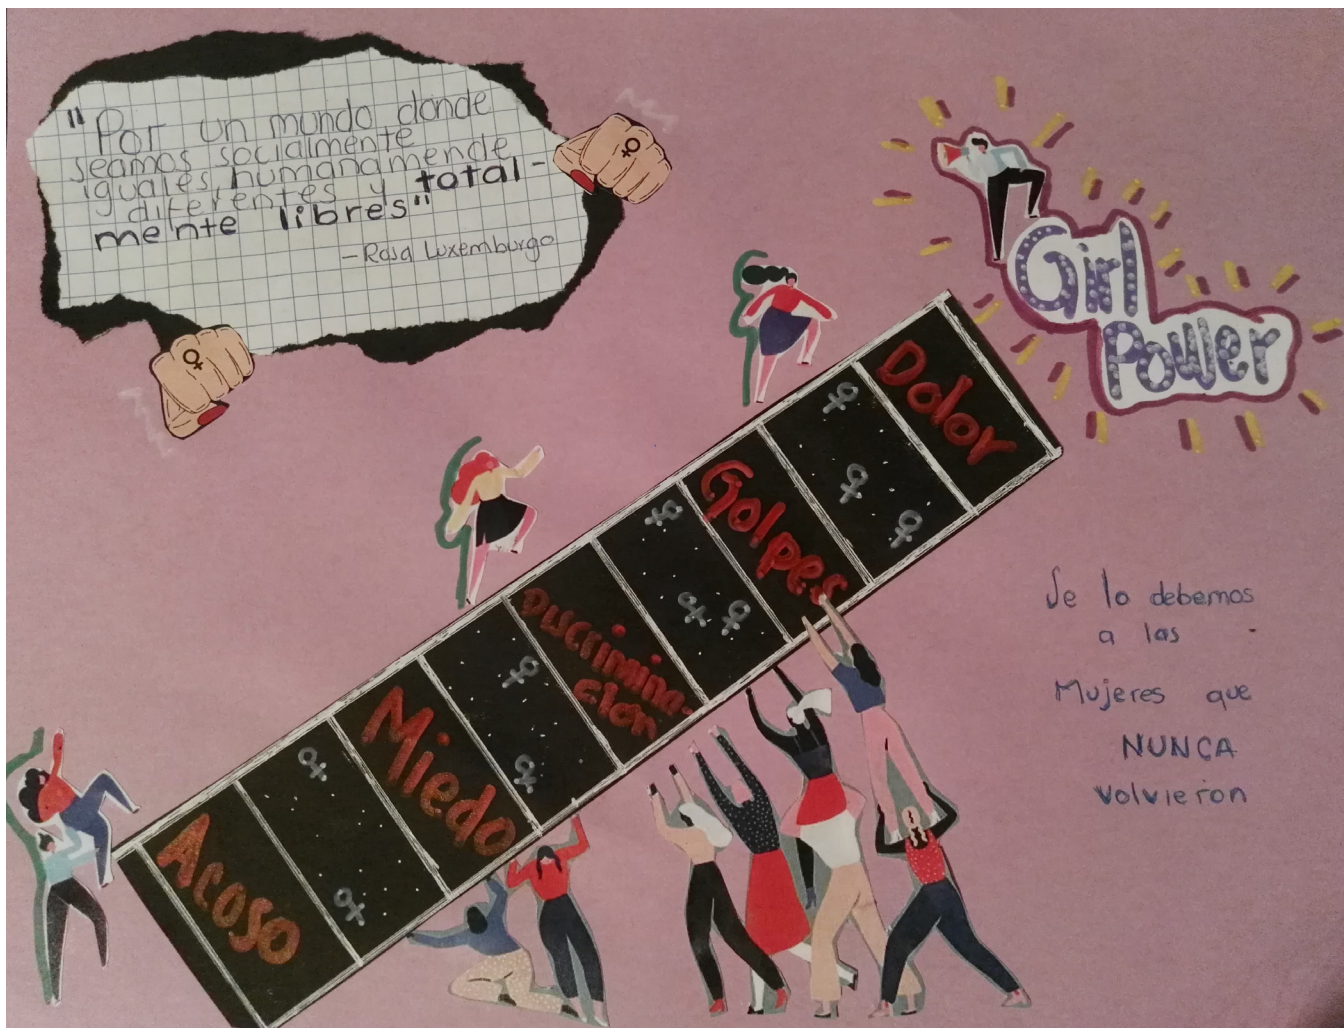 "Por un mundo donde
seamos socialmente
iguales, humanamende
diferentes y total-
mente libres"
-Rosa Luxemburgo
Girl
Power
Dolor
Golpes
Discrimina-
cion
Miedo
Acoso
Se lo debemos
a las
Mujeres que
NUNCA
volvieron